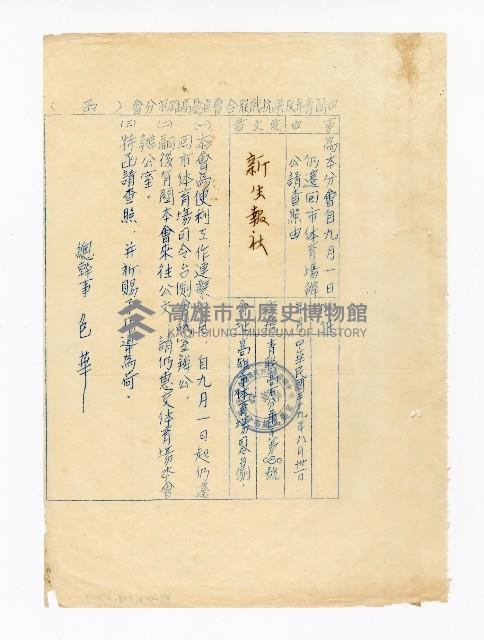 中國青年反共抗俄聯合會臺灣高雄市分會（函）
事由
為本分會自九月一日起
仍遷回市体育場辦
公請查照由
受文者
新生報社
中華民國三十九年八月卅一日
青聯高
號
會址高雄市体育場
(一)本會為便利工作連繫起見，自九月一日起仍遷
回市体育場司令台側會議室辦公。
(二)嗣後有關本會來往公文，請仍惠交体育場本會
辦公室。
(三)特函請查照，并祈賜予
為荷．
總幹事 包華
高雄市立歷史博物館
KAOHSIUNG MUSEUM OF HISTORY